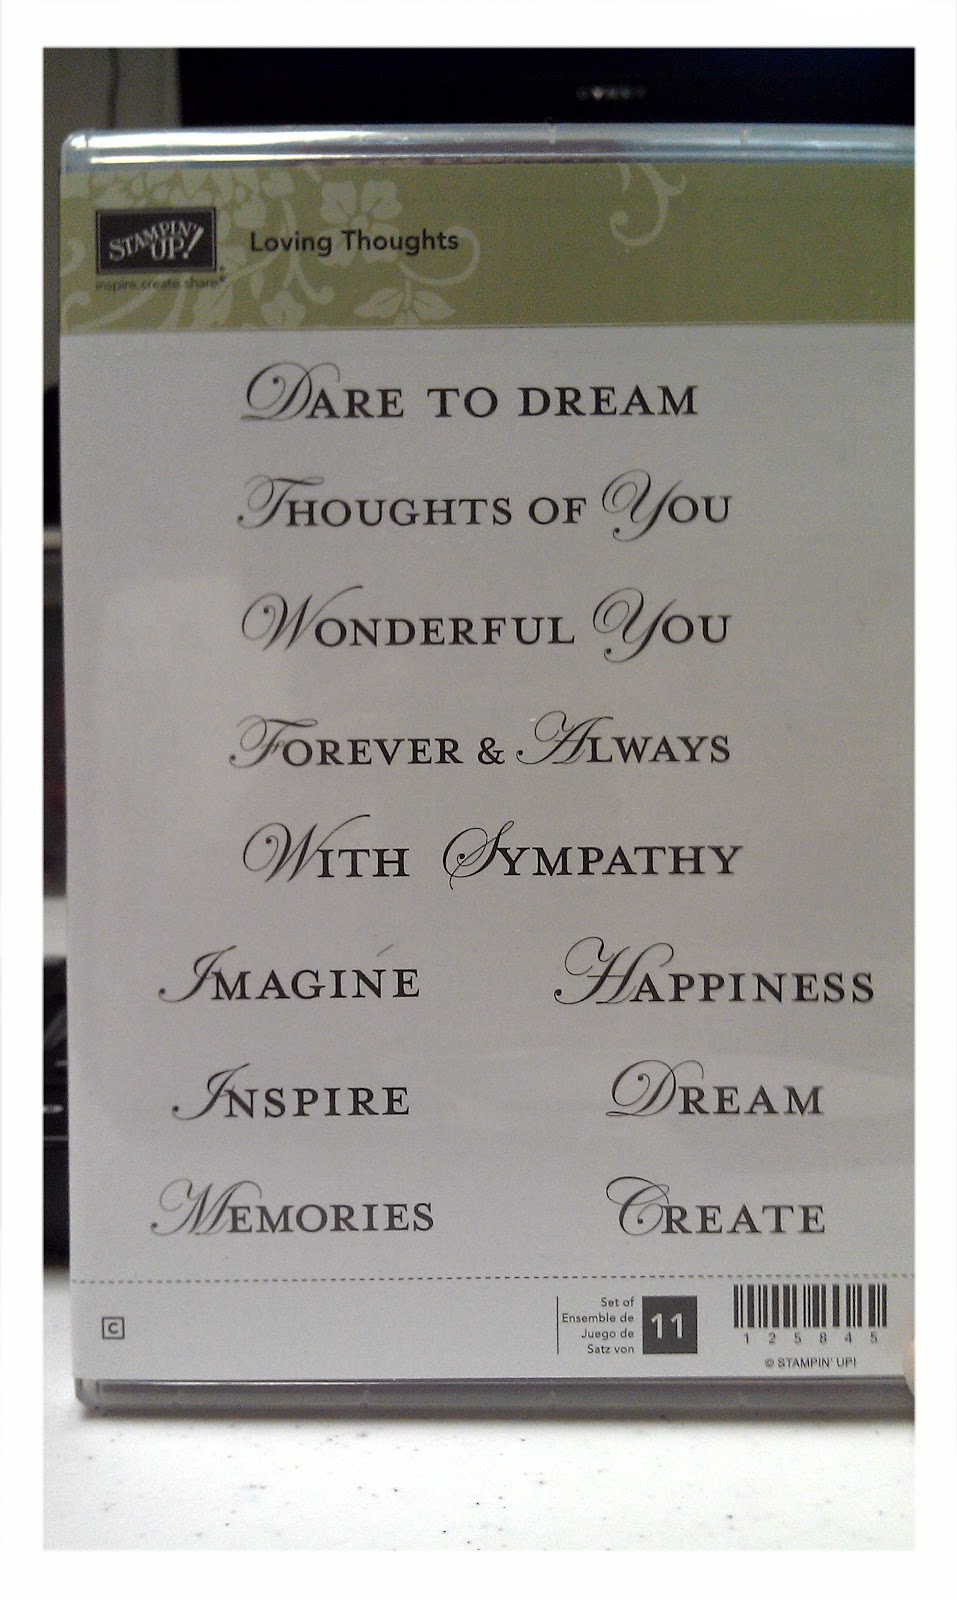 STAMPIN' UP!
inspire. create. share.
Loving Thoughts
DARE TO DREAM
THOUGHTS OF YOU
WONDERFUL YOU
FOREVER & ALWAYS
WITH SYMPATHY
IMAGINE HAPPINESS
INSPIRE DREAM
MEMORIES CREATE
C
Set of
Ensemble de
Juego de
Satz von
11
125845
© STAMPIN' UP!